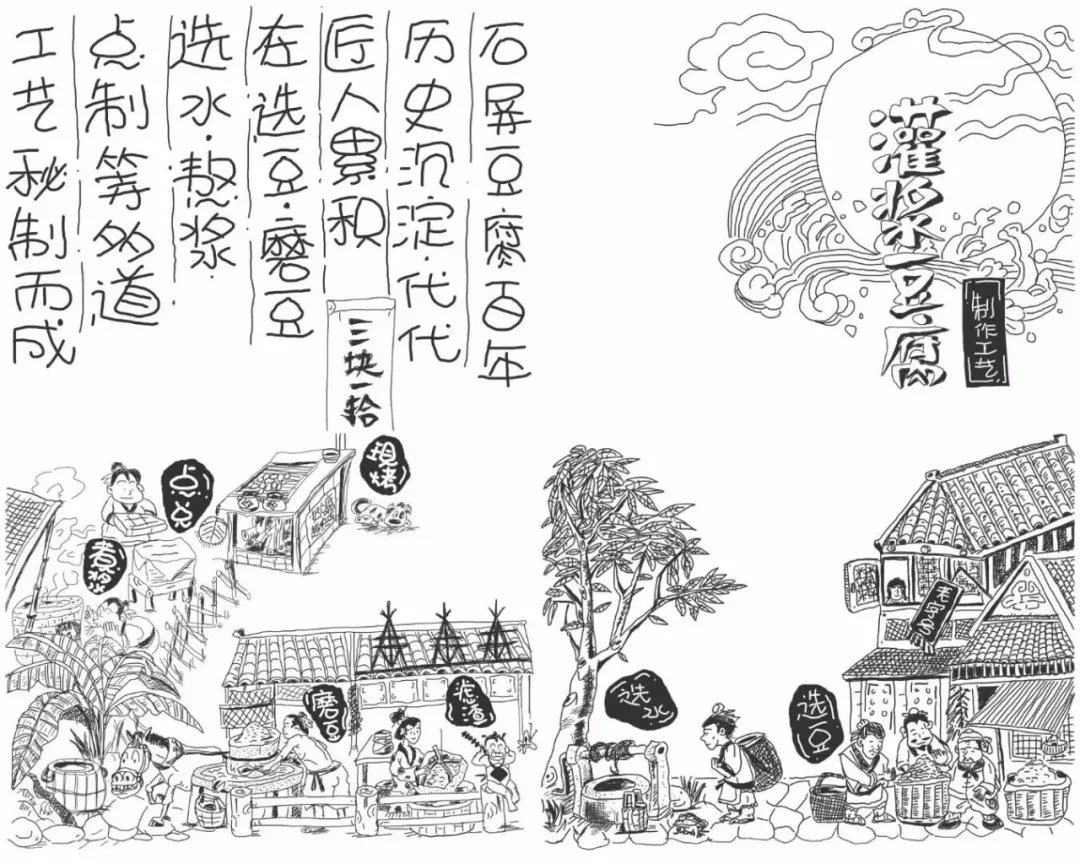 灌浆豆腐
制作工艺
石屏豆腐百年
历史沉淀·代代
匠人累积
在选豆·磨豆
选水·熬浆·
点制等多道
工艺秘制而成
三块一拾
现烤
点兑
煮浆
磨豆
滤渣
选水
选豆
老字号